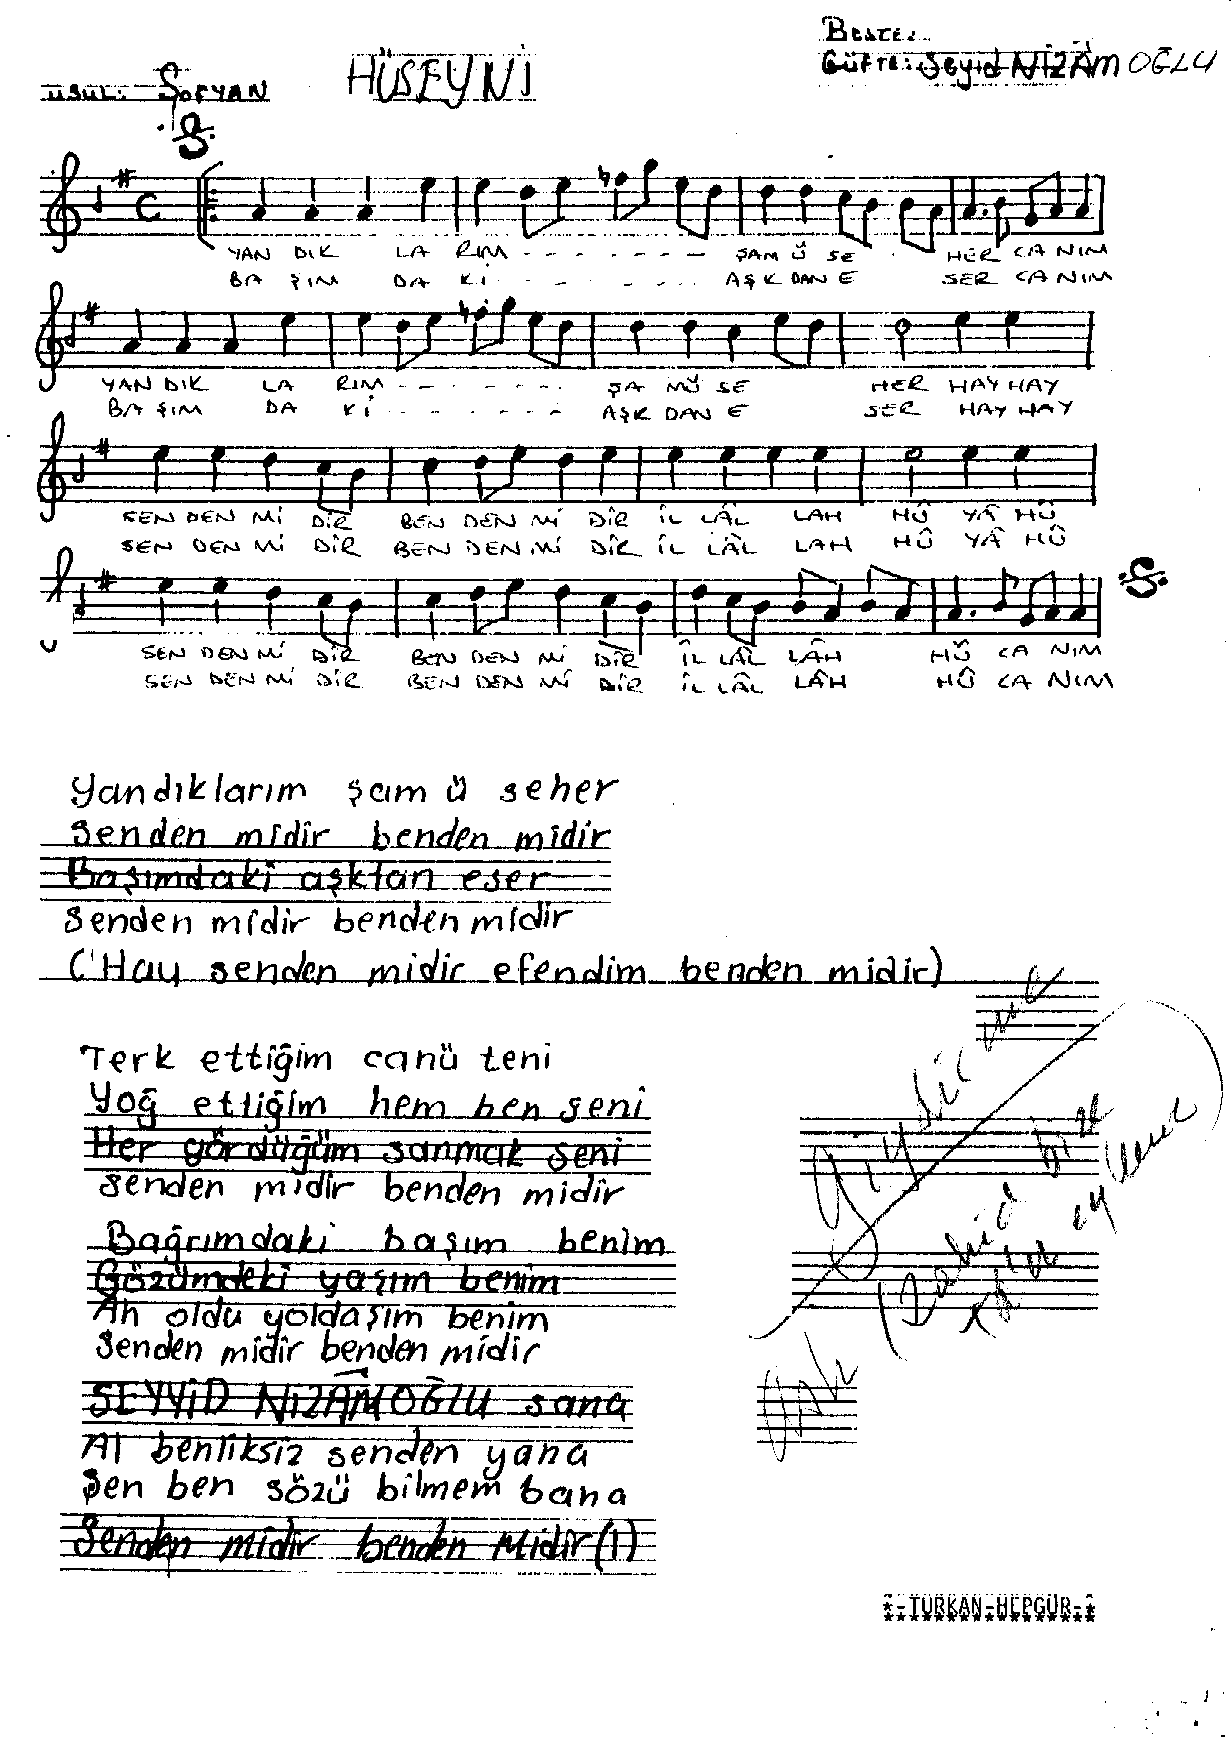 BESTE:
USUL: SOFYAN HÜSEYNİ GÜFTE: Seyid NİZÂMOĞLU
YAN DIK LA RIM - - - - - - - ŞAM Ü SE - HER CA NIM
BA ŞIM DA Kİ - - - - - - - AŞK DAN E SER CA NIM
YAN DIK LA RIM - - - - - - ŞA MÜ SE HER HAY HAY
BA ŞIM DA Kİ - - - - - - AŞK DAN E SER HAY HAY
SEN DEN Mİ DİR BEN DEN Mİ DİR İL LÂL LAH HÛ YÂ HÛ
SEN DEN Mİ DİR BEN DEN Mİ DİR İL LÂL LAH HÛ YÂ HÛ
SEN DEN Mİ DİR BEN DEN Mİ DİR ÎL LÂL LÂH HÛ CA NIM
SEN DEN Mİ DİR BEN DEN Mİ DİR ÎL LÂL LÂH HÛ CA NIM
Yandıklarım şam ü seher
Senden midir benden midir
Başımdaki aşktan eser
Senden midir benden midir
(Hay senden midir efendim benden midir)
Terk ettiğim canü teni
Yoğ ettiğim hem ben seni
Her gördüğüm sanmak seni
Senden midir benden midir
Bağrımdaki başım benim
Gözümdeki yaşım benim
Ah oldu yoldaşım benim
Senden midir benden midir
SEYYİD NİZÂMOĞLU sana
At benliksiz senden yana
Sen ben sözü bilmem bana
Senden midir benden Midir (1)
*-TÜRKAN-HEPGÜR-*